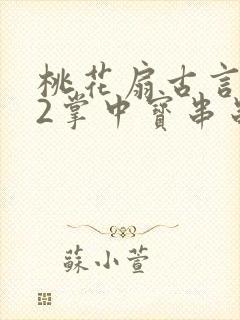 桃花扇古言
2掌中寳串
蘇小萱